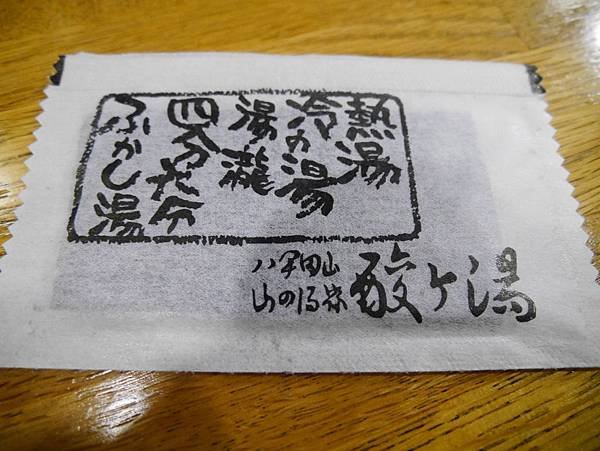 熱湯
冷の湯
湯瀧
四分六分
ふかし湯
八甲田山
山の湯宿
酸ヶ湯